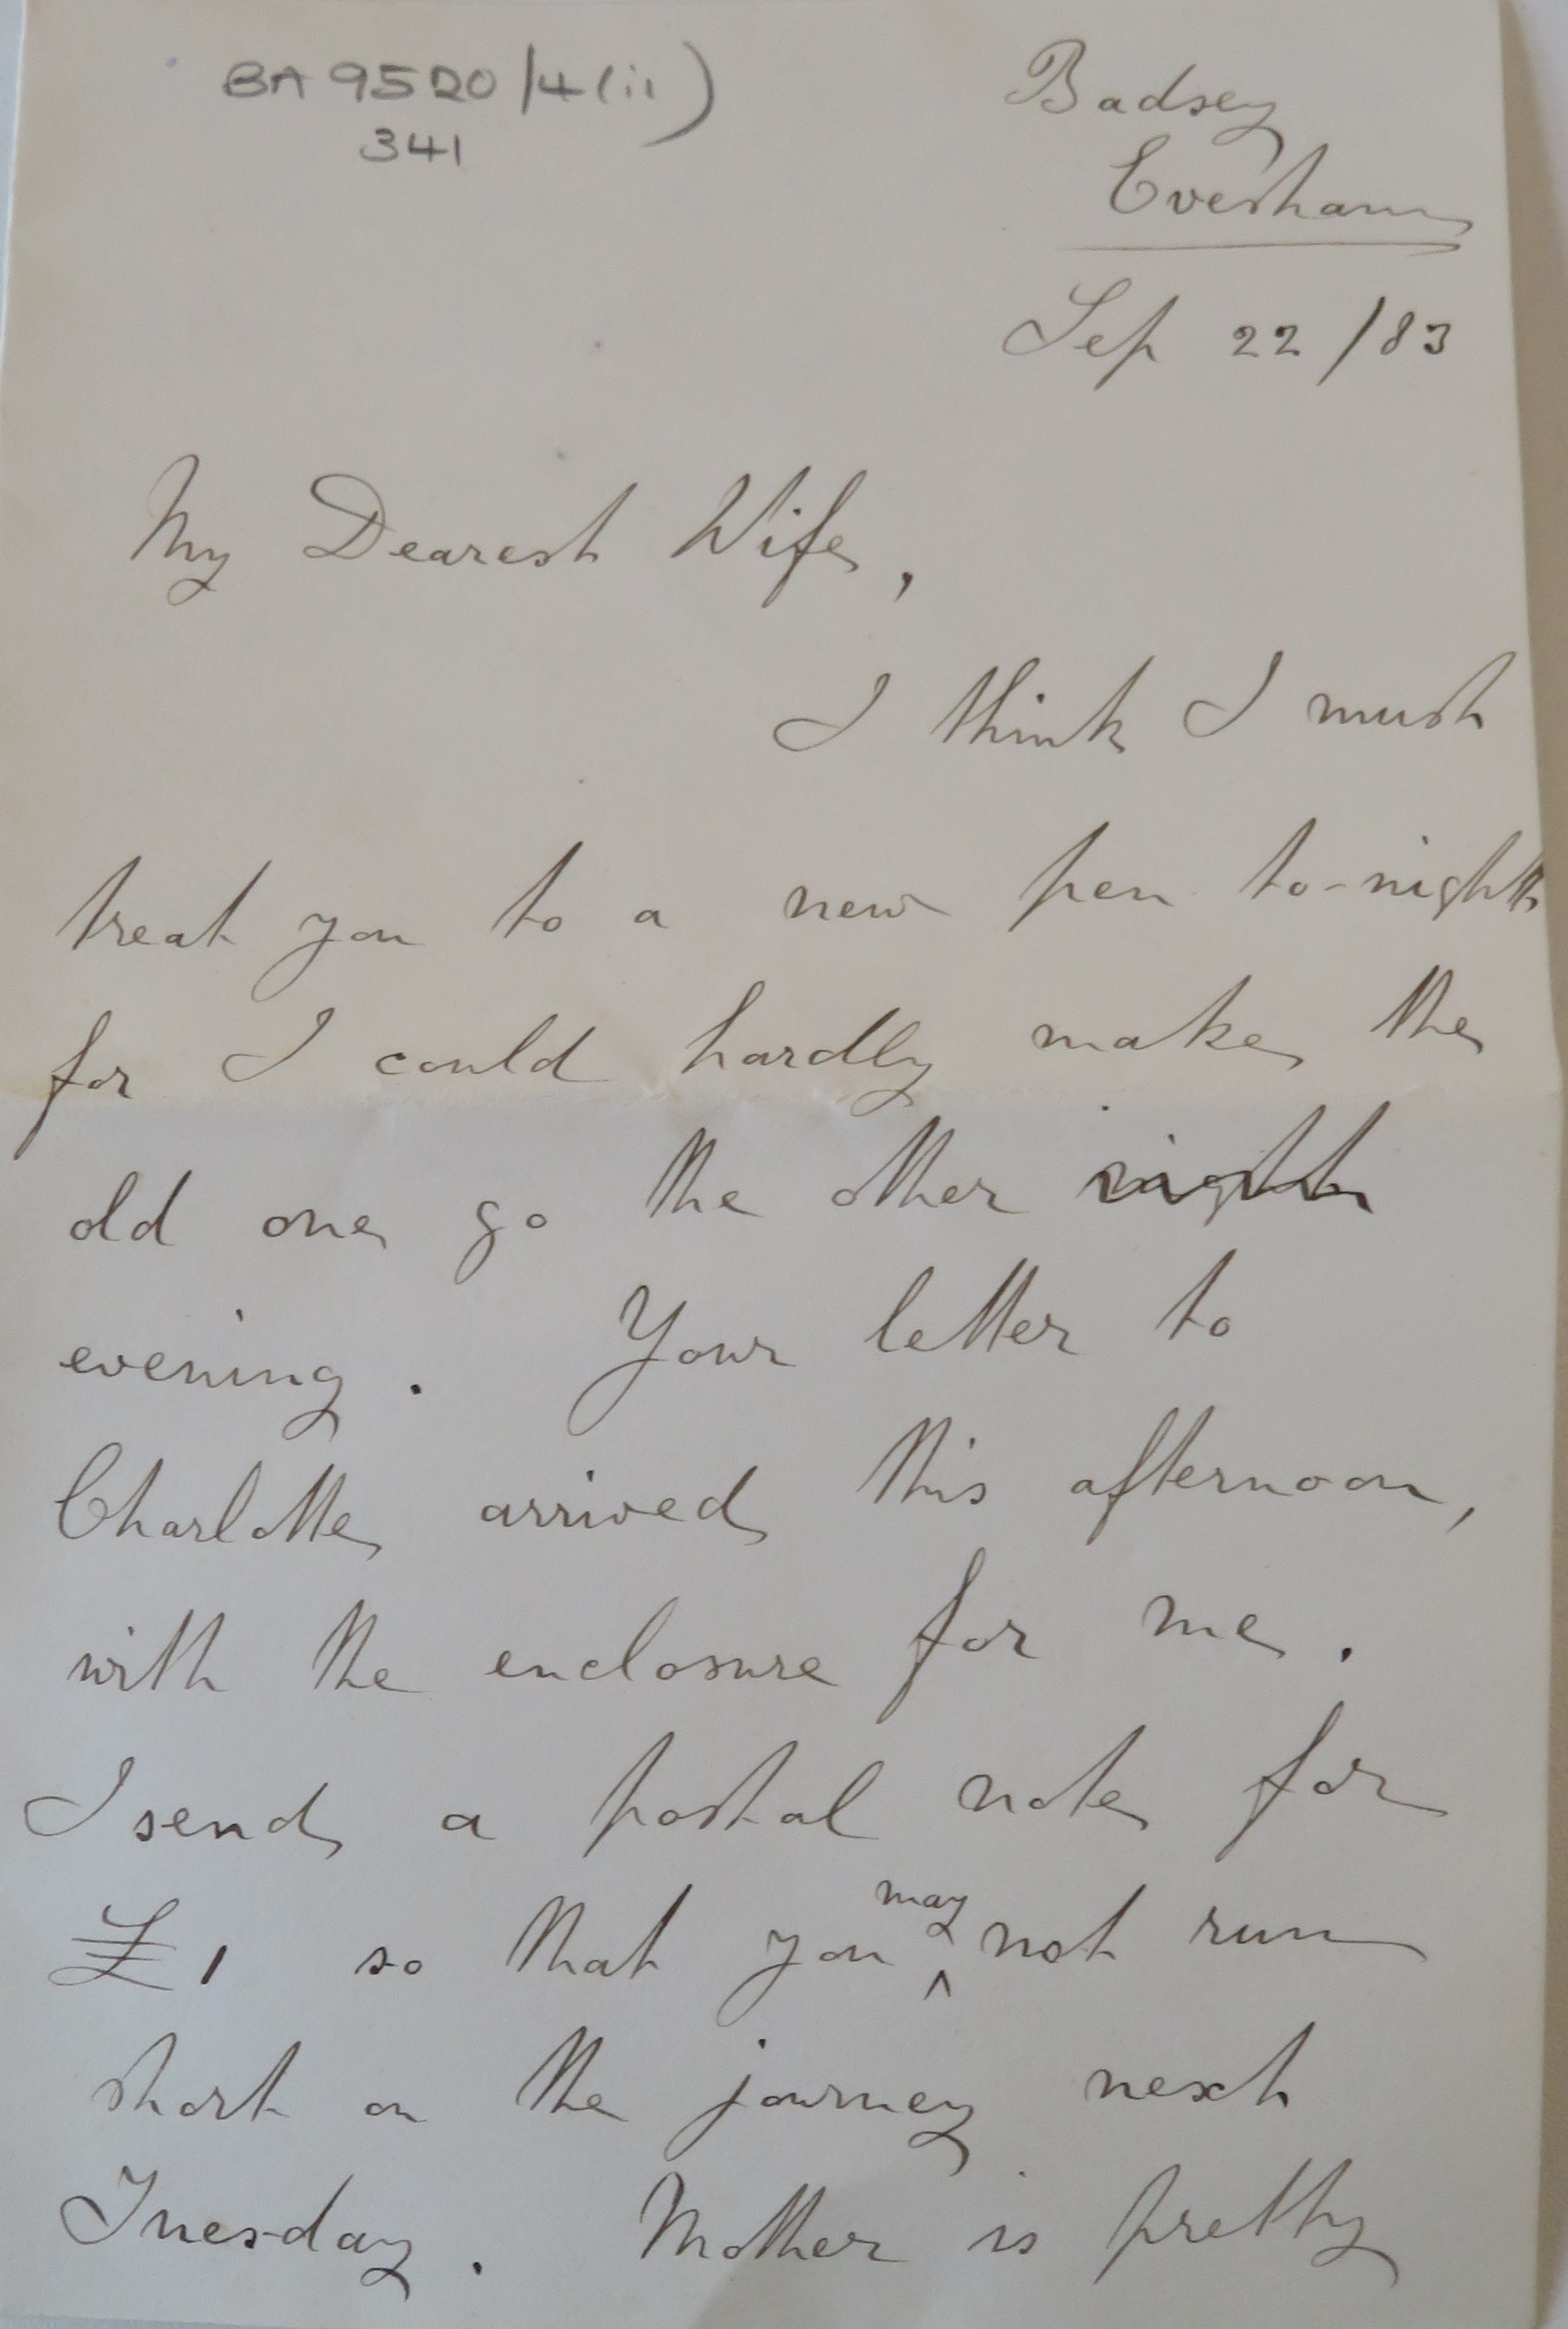 BA 9520/4(ii)
341
Badsey
Evesham
Sep 22/83
My Dearest Wife,
I think I must
treat you to a new pen to-night
for I could hardly make the
old one go the other night
evening. Your letter to
Charlotte arrived this afternoon,
with the enclosure for me.
I send a postal note for
£1 so that you may not run
short on the journey next
Tuesday. Mother is pretty